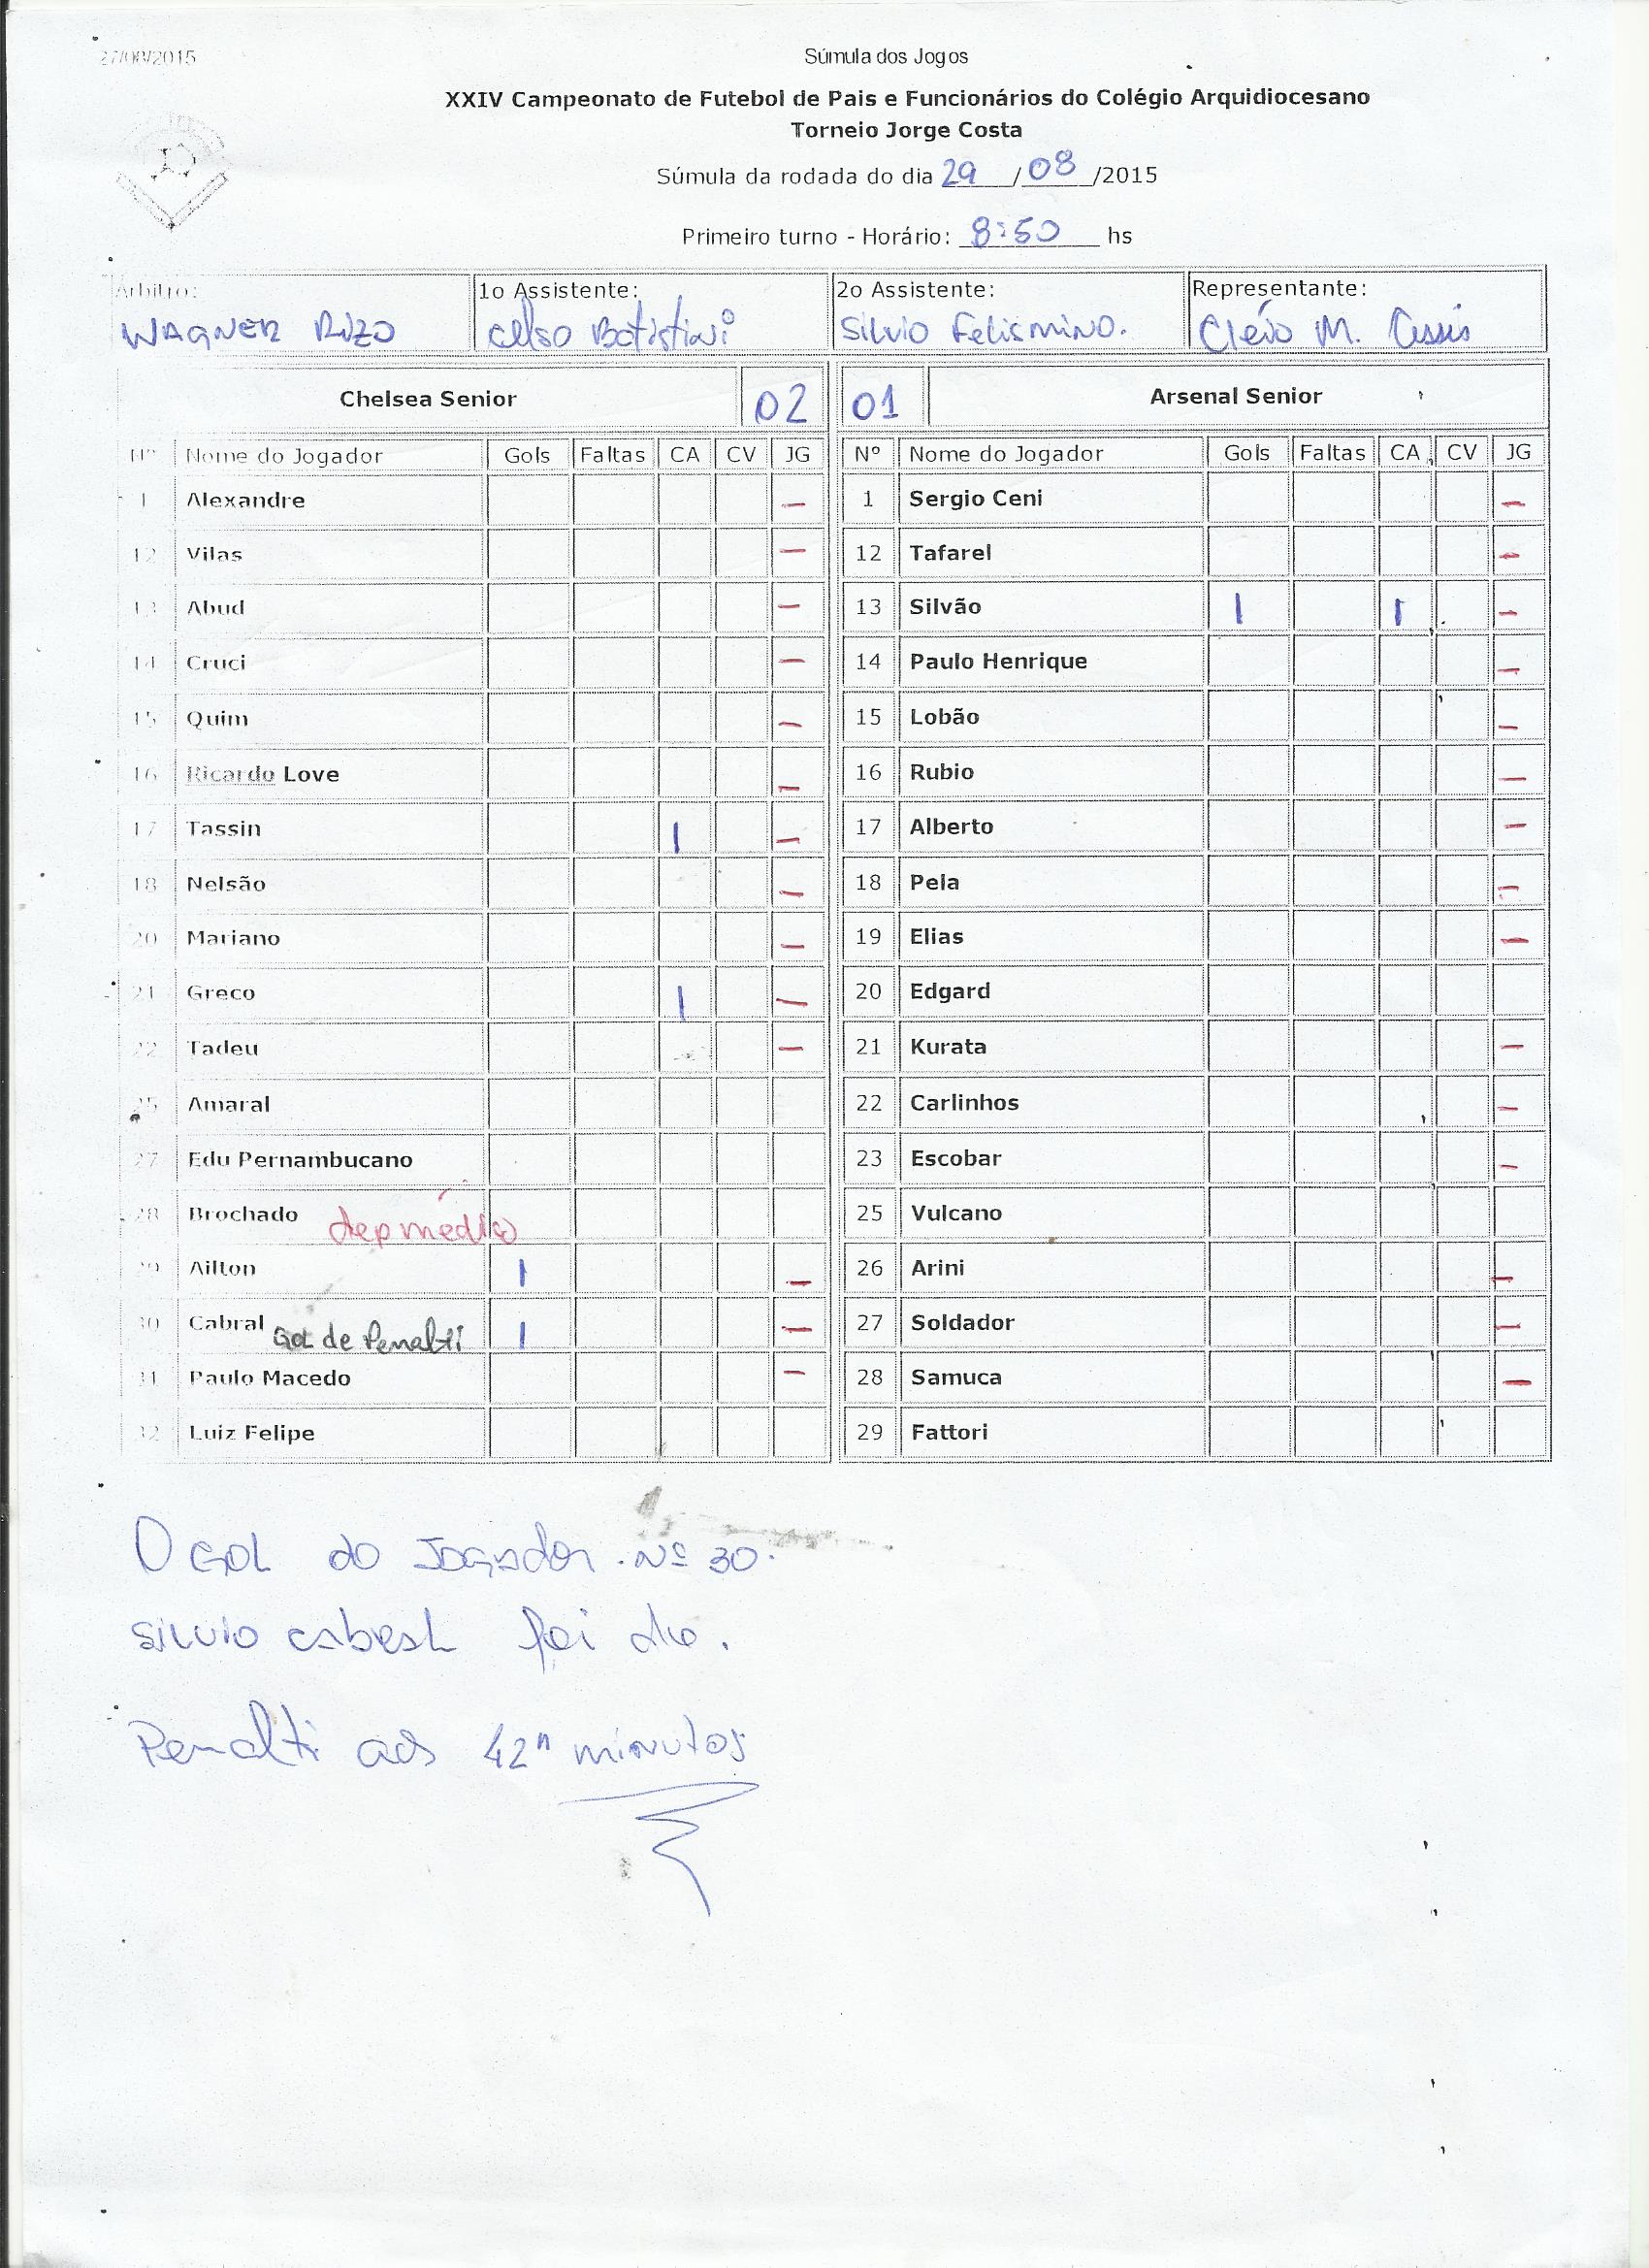 27/08/2015 Súmula dos Jogos
XXIV Campeonato de Futebol de Pais e Funcionários do Colégio Arquidiocesano
Torneio Jorge Costa
Súmula da rodada do dia 29/08/2015
Primeiro turno - Horário: 8:50 hs
Arbitro: 1o Assistente: 2o Assistente: Representante:
WAGNER RIZO Celso Batistini Silvio Felismino. Cleio M. Assis
Chelsea Senior 02 01 Arsenal Senior
Nº Nome do Jogador Gols Faltas CA CV JG Nº Nome do Jogador Gols Faltas CA CV JG
1 Alexandre — 1 Sergio Ceni —
12 Vilas — 12 Tafarel —
13 Abud — 13 Silvão I I —
14 Cruci — 14 Paulo Henrique —
15 Quim — 15 Lobão —
16 Ricardo Love — 16 Rubio —
17 Tassin I — 17 Alberto —
18 Nelsão — 18 Pela —
20 Mariano — 19 Elias —
21 Greco I — 20 Edgard
22 Tadeu — 21 Kurata —
25 Amaral 22 Carlinhos —
27 Edu Pernambucano 23 Escobar —
28 Brochado dep médico 25 Vulcano
29 Ailton I — 26 Arini —
30 Cabral Gol de Penalti I — 27 Soldador —
31 Paulo Macedo — 28 Samuca —
32 Luiz Felipe 29 Fattori
O GOL do Jogador Nº 30.
Silvio cabral foi de.
Penalti aos 42" minutos